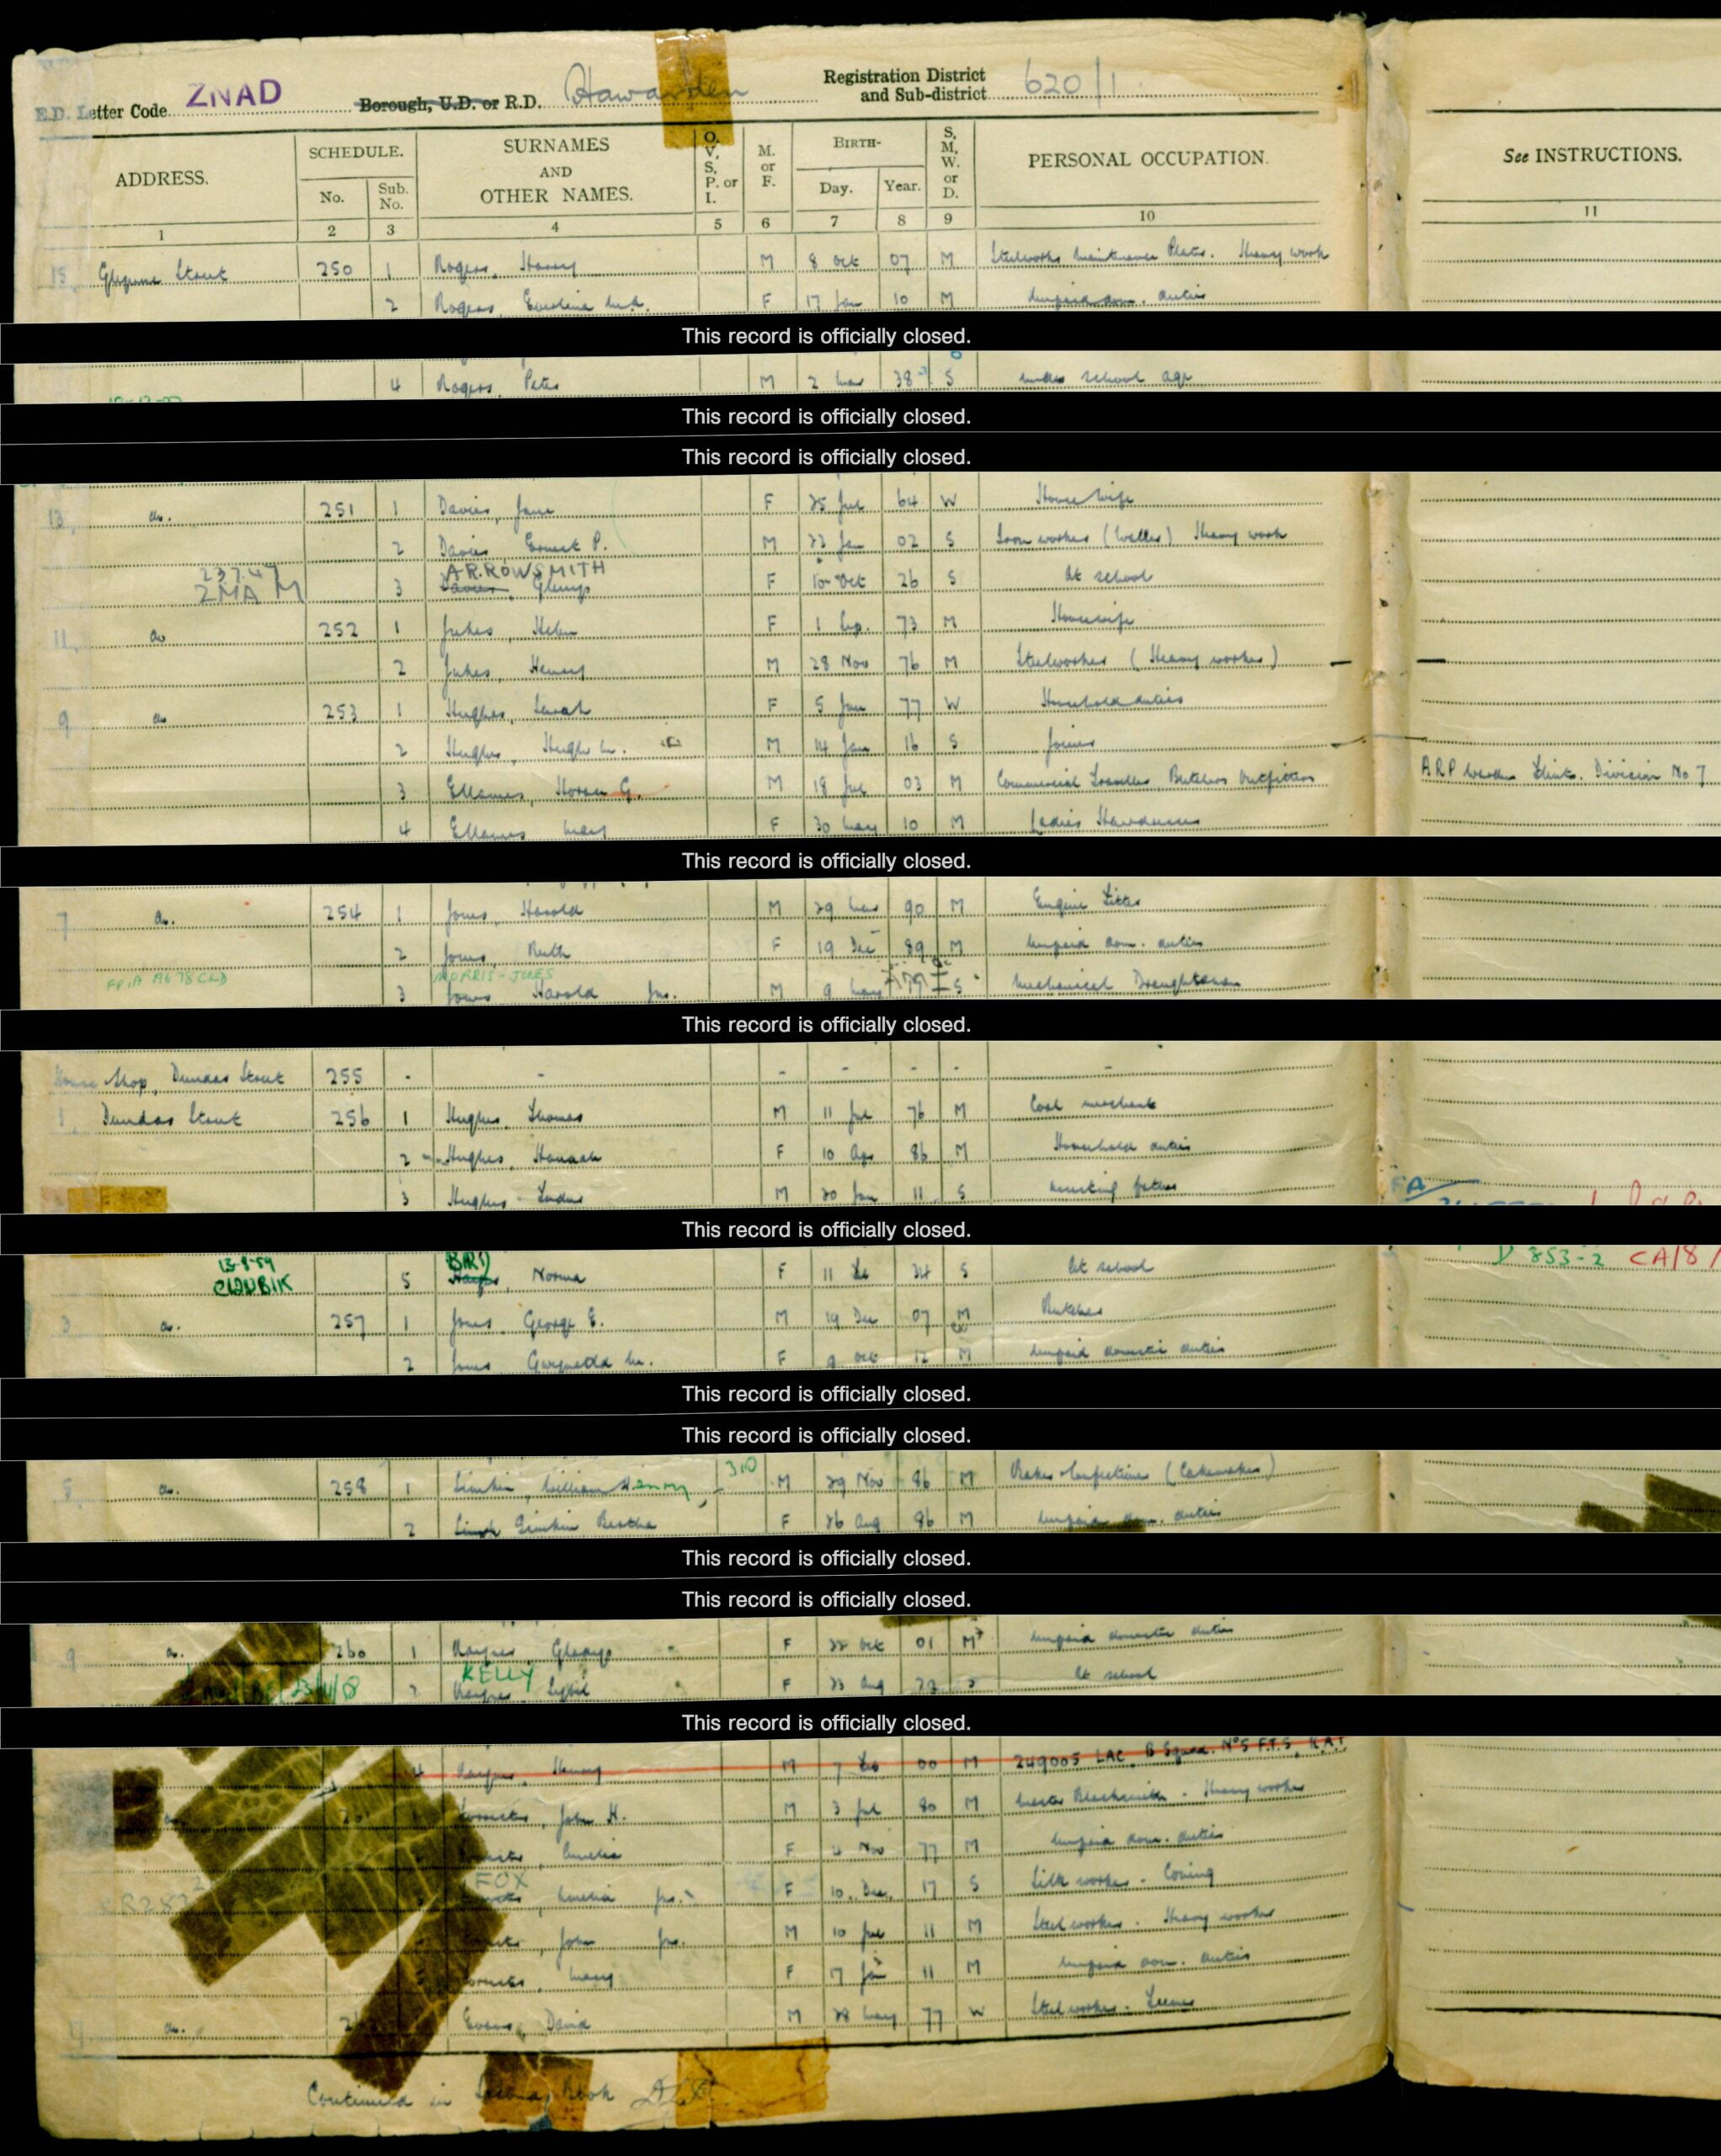 E.D. Letter Code ZNAD Borough, U.D. or R.D. Hawarden Registration District and Sub-district 620/1
ADDRESS. SCHEDULE. No. Sub. No. SURNAMES AND OTHER NAMES. O. V, S, P. or I. M. or F. BIRTH- Day. Year. S, M, W. or D. PERSONAL OCCUPATION. See INSTRUCTIONS.
1 2 3 4 5 6 7 8 9 10 11
15 Glynne Street 250 1 Rogers, Harry M 8 Oct 07 M Steelworks Maintenance Plater. Heavy work
2 Rogers, F 17 Jan 10 M Unpaid dom. duties
This record is officially closed.
4 Rogers, Peter M 2 Mar 38 S under school age
This record is officially closed.
This record is officially closed.
13 do. 251 1 Davies, Jane F 25 Jul 64 W Housewife
2 Davies, Ernest P. M 02 S Iron worker Heavy work
23.7.47 ARROWSMITH
ZMA M 3 Davies, Glenys F 10 Oct 26 S At school
11 do 252 1 Jukes, Helen F 1 Sep. 73 M Housewife
2 Jukes, Henry M 28 Nov 76 M Steelworker (Heavy worker)
9 do 253 1 Hughes, Sarah F 5 Jan 77 W Household duties
2 Hughes, Hugh M. M 14 Jan 16 S Joiner
3 Ellames, Horace G. M 18 Jul 03 M Commercial Traveller, Butchers Outfitters ARP Warden Flint. Division No 7
4 Ellames Mary F 30 May 10 M Ladies Hairdresser
This record is officially closed.
7 do. 254 1 Jones, Harold M 29 Mar 90 M Engine Fitter
2 Jones, Ruth F 19 Dec 89 M Unpaid dom. duties
MORRIS-JONES
3 Jones Harold Jnr. M 9 May S Mechanical Draughtsman
This record is officially closed.
House Shop, Dundas Street 255 - - - - - - -
1 Dundas Street 256 1 Hughes, Thomas M 11 Jul 76 M Coal merchant
2 Hughes, Hannah F 10 Apr 86 M Household duties
3 Hughes M 20 Jan 11 S Assisting father
This record is officially closed.
13-8-59 BIRD
5 Norma F 11 24 S At school V 853-2 CA/8/
3 do. 257 1 Jones George E. M 19 Dec 07 M Butcher
2 Jones Gwynedd M. F 9 Oct 12 M Unpaid domestic duties
This record is officially closed.
This record is officially closed.
5 do. 258 1 Simkin, William Henry 310 M 29 Nov 86 M Baker Confectioner (Cakemaker)
2 Simkin Bertha F 26 Aug 86 M Unpaid dom. duties
This record is officially closed.
This record is officially closed.
9 do. 260 1 Gladys F 22 Oct 01 M Unpaid domestic duties
KELLY
23/11/68 2 Sybil F 23 Aug S At school
This record is officially closed.
4 Henry M 7 00 M 249005 LAC. B Squad. No 5 F.T.S, R.A.F
do. John H. M 3 Jul 80 M Master Blacksmith - Heavy worker
Amelia F 4 Nov 77 M Unpaid dom. duties
FOX
Amelia Jnr. F 10. Dec. 17 S Silk worker - Coning
John Jnr. M 10 Jul 11 M Steel worker. Heavy worker
Mary F 17 Jan 11 M Unpaid dom. duties
17 do. Evans, David M 28 May 77 W Steel worker.
Continued in Second Book